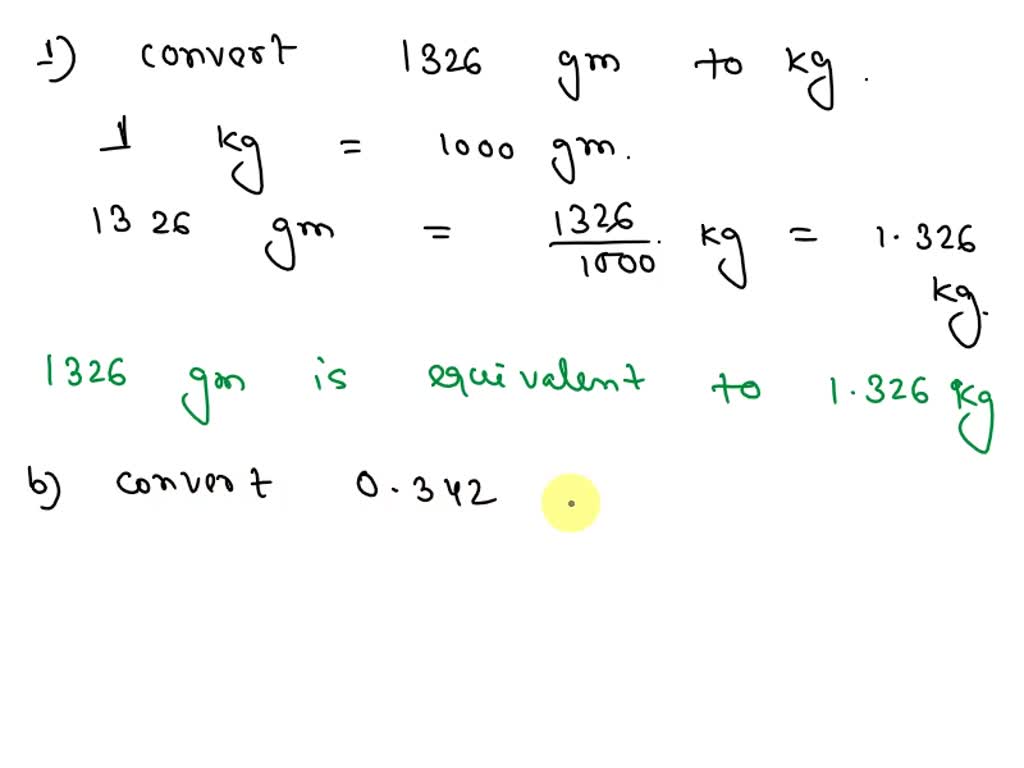 1) convert 1326 gm to kg.
1 kg = 1000 gm.
1326 gm = 1326/1000 kg = 1.326
kg.
1326 gm is equivalent to 1.326 kg
b) convert 0.342